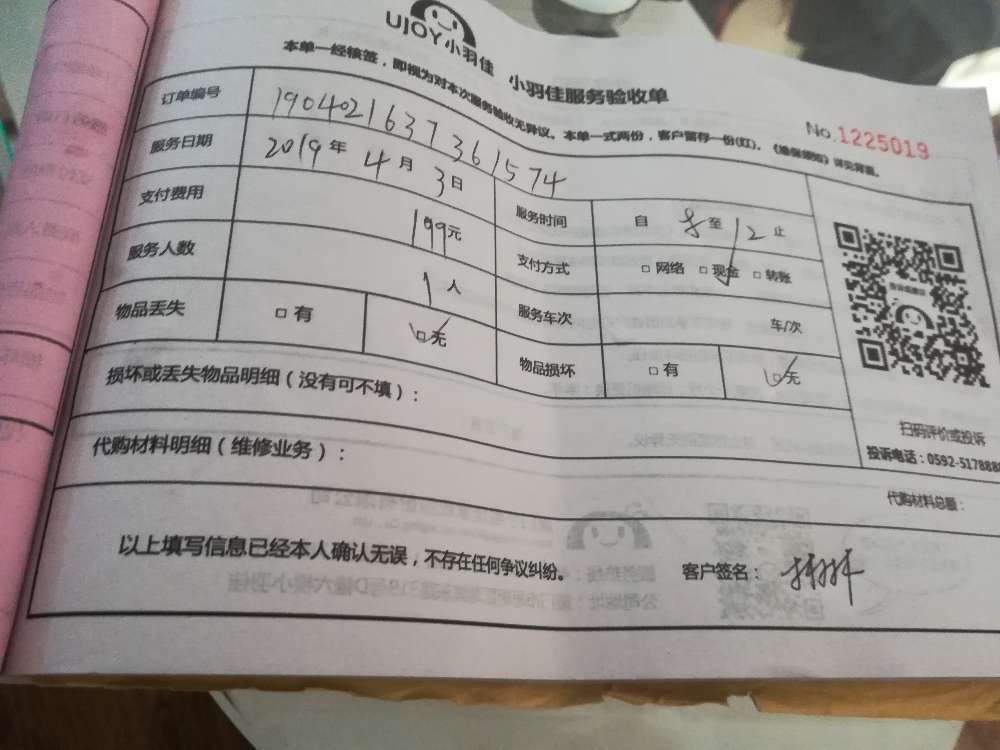 UJOY小羽佳 小羽佳服务验收单
No.1225019
本单一经核签，即视为对本次服务验收无异议。本单一式两份，客户留存一份(红)。《维保须知》详见背面。
订单编号 190402163736 1574
服务日期 2019年4月3日 服务时间 自8至12止
支付费用 199元 支付方式 □网络 □现金 □转账
服务人数 1人 服务车次 车/次
物品丢失 □有 □无 物品损坏 □有 □无
损坏或丢失物品明细（没有可不填）：
扫码评价或投诉
投诉电话：0592-5178888
代购材料明细（维修业务）：
代购材料总额：
以上填写信息已经本人确认无误，不存在任何争议纠纷。 客户签名：